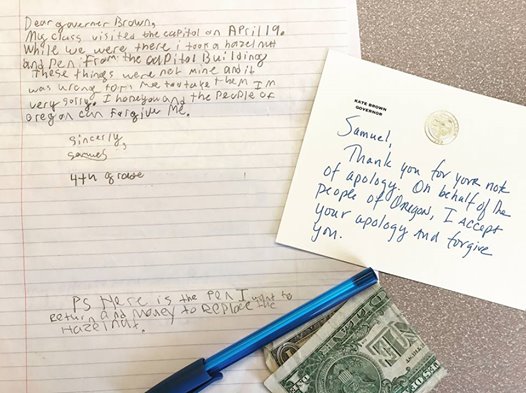 Dear governer Brown,
My class visited the capitol on April 19.
While we were there i took a hazel nut
and pen from the capitol Building
These things were not mine and it
was wrong for me to take them I'm
very sorry. I hope you and the people of
oregon can forgive me.
sincerly,
samuel
4th grade
PS Here is the pen I want to
return and money to replace the
Hazelnut.
KATE BROWN
GOVERNOR
Samuel,
Thank you for your note
of apology. On behalf of the
people of Oregon, I accept
your apology and forgive
you.
ONE